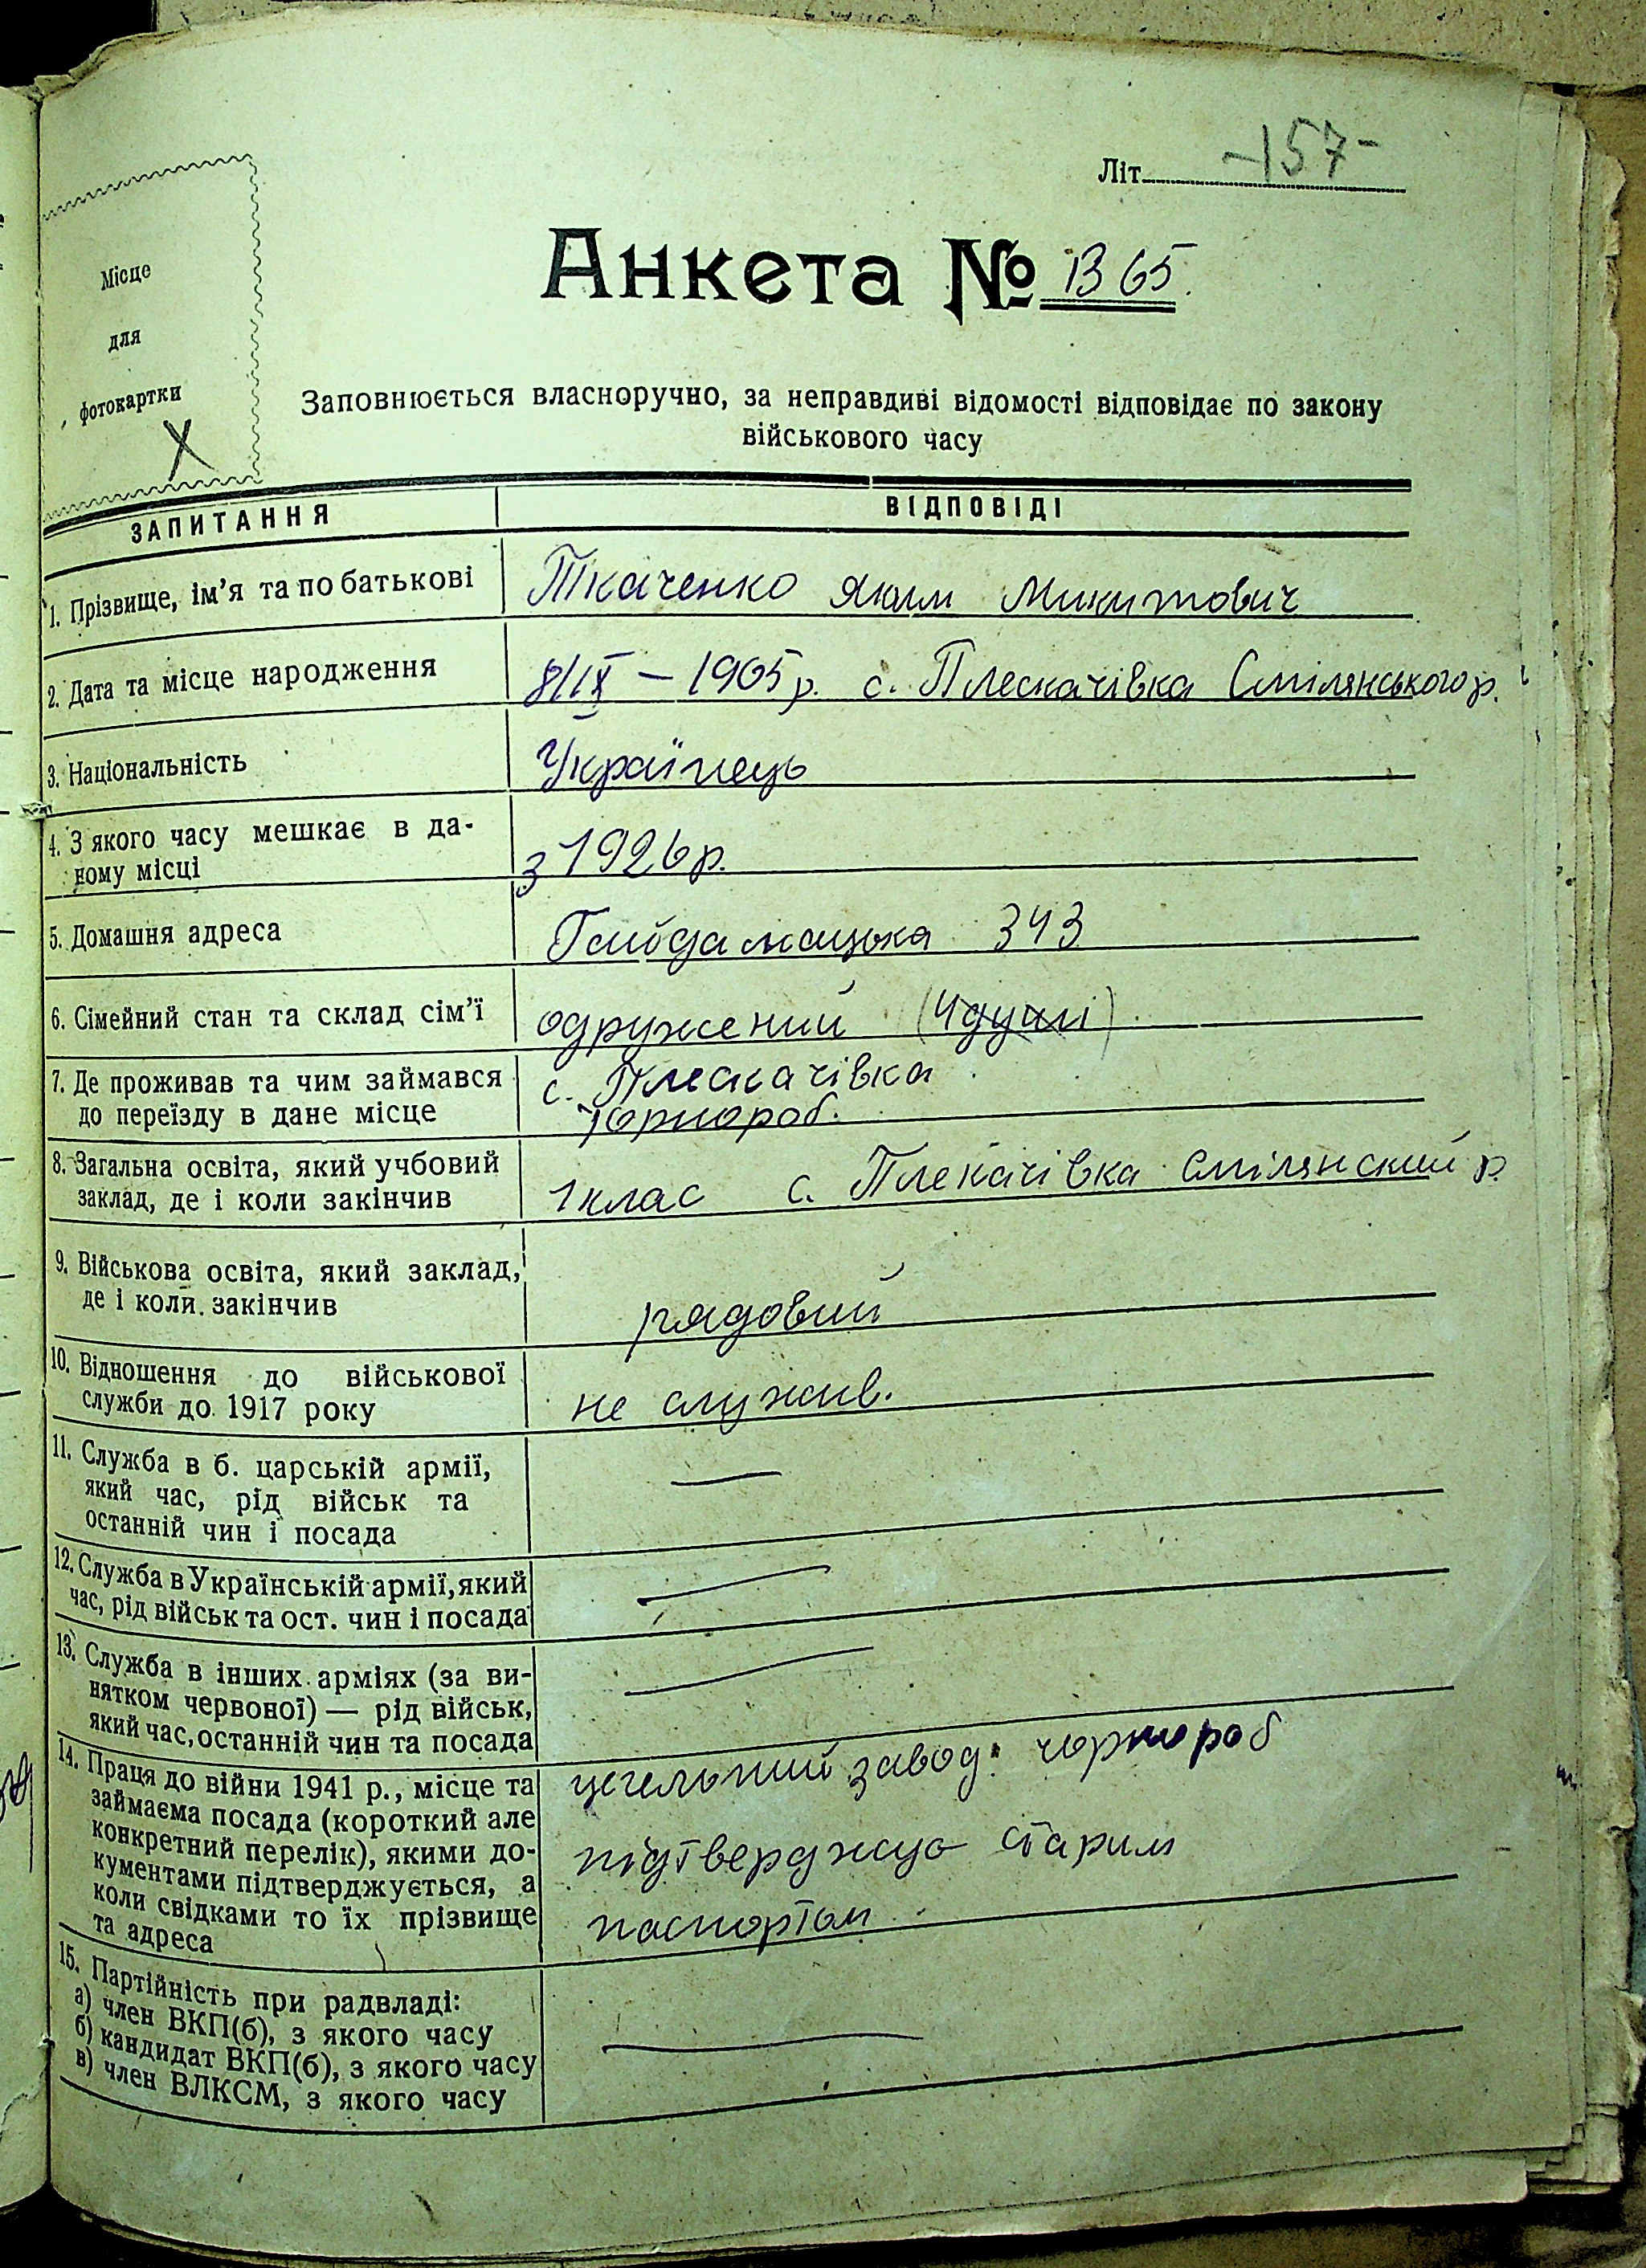 Літ. -157-
Місце
для
фотокартки
Х
Анкета № 1365.
Заповнюється власноручно, за неправдиві відомості відповідає по закону
військового часу
ЗАПИТАННЯ ВІДПОВІДІ
1. Прізвище, ім'я та по батькові Ткаченко Яким Микитович
2. Дата та місце народження 8/ІХ – 1905 р. с. Плескачівка Смілянського р.
3. Національність Українець
4. З якого часу мешкає в да-
ному місці з 1926 р.
5. Домашня адреса Гайдамацька 343
6. Сімейний стан та склад сім'ї одружений (4 душі)
7. Де проживав та чим займався с. Плескачівка
до переїзду в дане місце чорнороб.
8. Загальна освіта, який учбовий
заклад, де і коли закінчив 1 клас с. Плекачівка Смілянский р.
9. Військова освіта, який заклад,
де і коли закінчив рядовий
10. Відношення до військової
служби до 1917 року не служив.
11. Служба в б. царській армії, —
який час, рід військ та
останній чин і посада
12. Служба в Українській армії, який —
час, рід військ та ост. чин і посада
13. Служба в інших арміях (за ви- —
нятком червоної) — рід військ,
який час, останній чин та посада
14. Праця до війни 1941 р., місце та цегельний завод: чорнороб
займаєма посада (короткий але
конкретний перелік), якими до- підтверджую старим
кументами підтверджується, а
коли свідками то їх прізвище паспортом
та адреса
15. Партійність при радвладі:
а) член ВКП(б), з якого часу —
б) кандидат ВКП(б), з якого часу
в) член ВЛКСМ, з якого часу